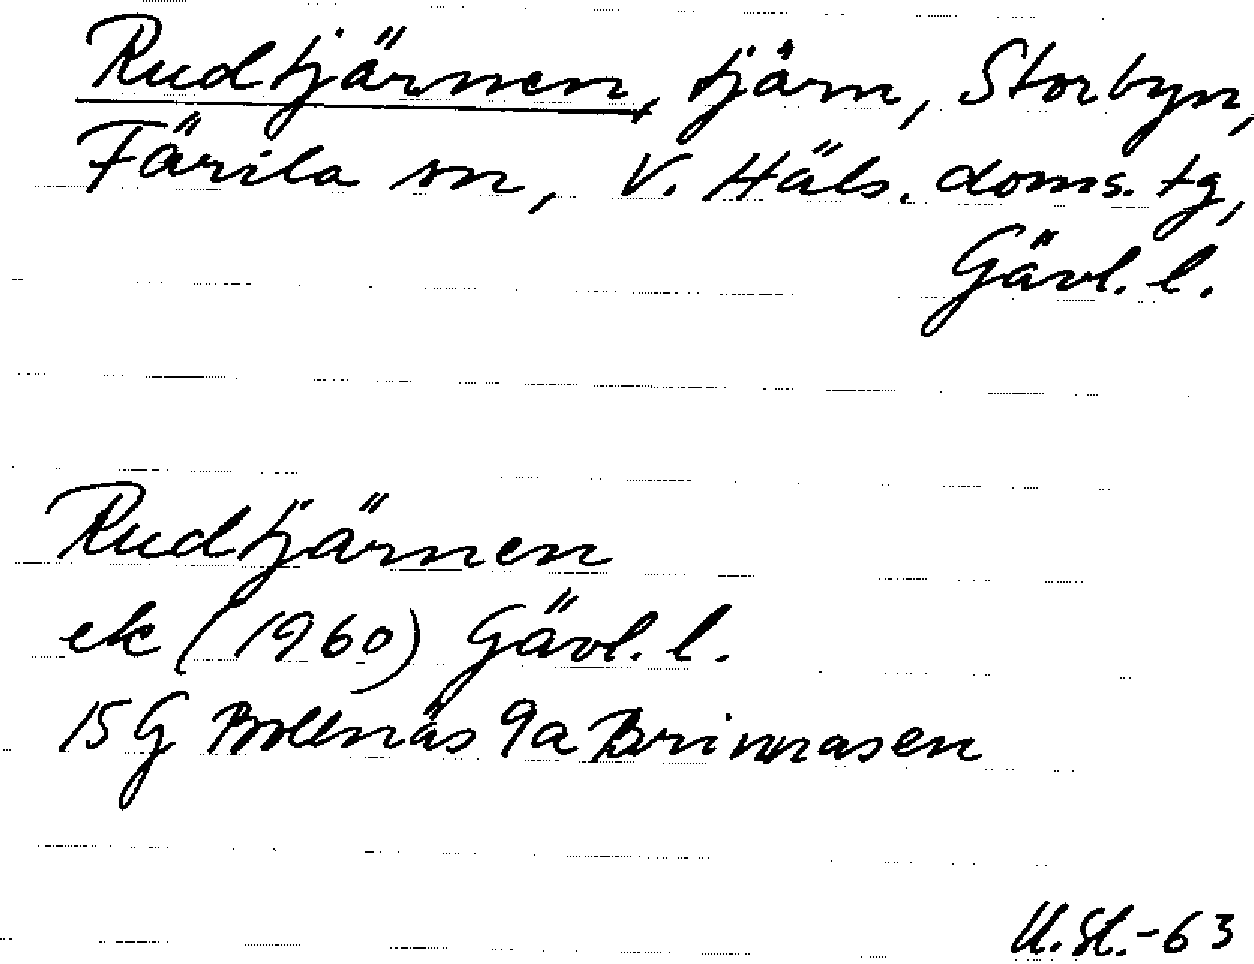 Rudtjärnen, tjärn, Storbyn,
Färila sn, V. Häls. doms. tg,
Gävl. l.
Rudtjärnen
ek (1960) Gävl. l.
15G Bollnäs 9a Brinnåsen
U.Sl.-63